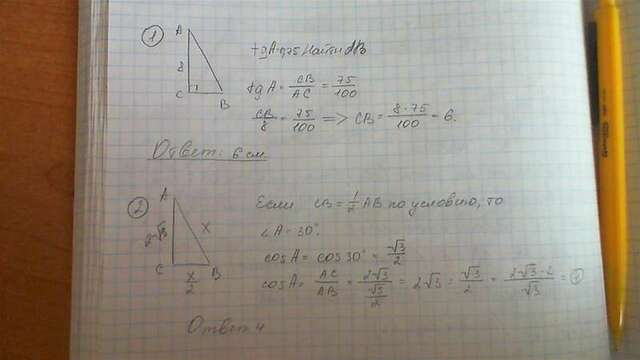 1
A
8
C
B
tgA=0,75 Найти
tgA = CB/AC = 75/100
CB/8 = 75/100 => CB = 8·75/100 = 6.
Ответ: 6 см
2
A
2√3
x
C
x/2
B
Если CB = 1/2 AB по условию, то
∠A = 30°.
cosA = cos30° = √3/2
cosA = AC/AB = 2√3/(√3/2) = 2√3 = √3/2 = 2√3·2/√3 =
Ответ 4